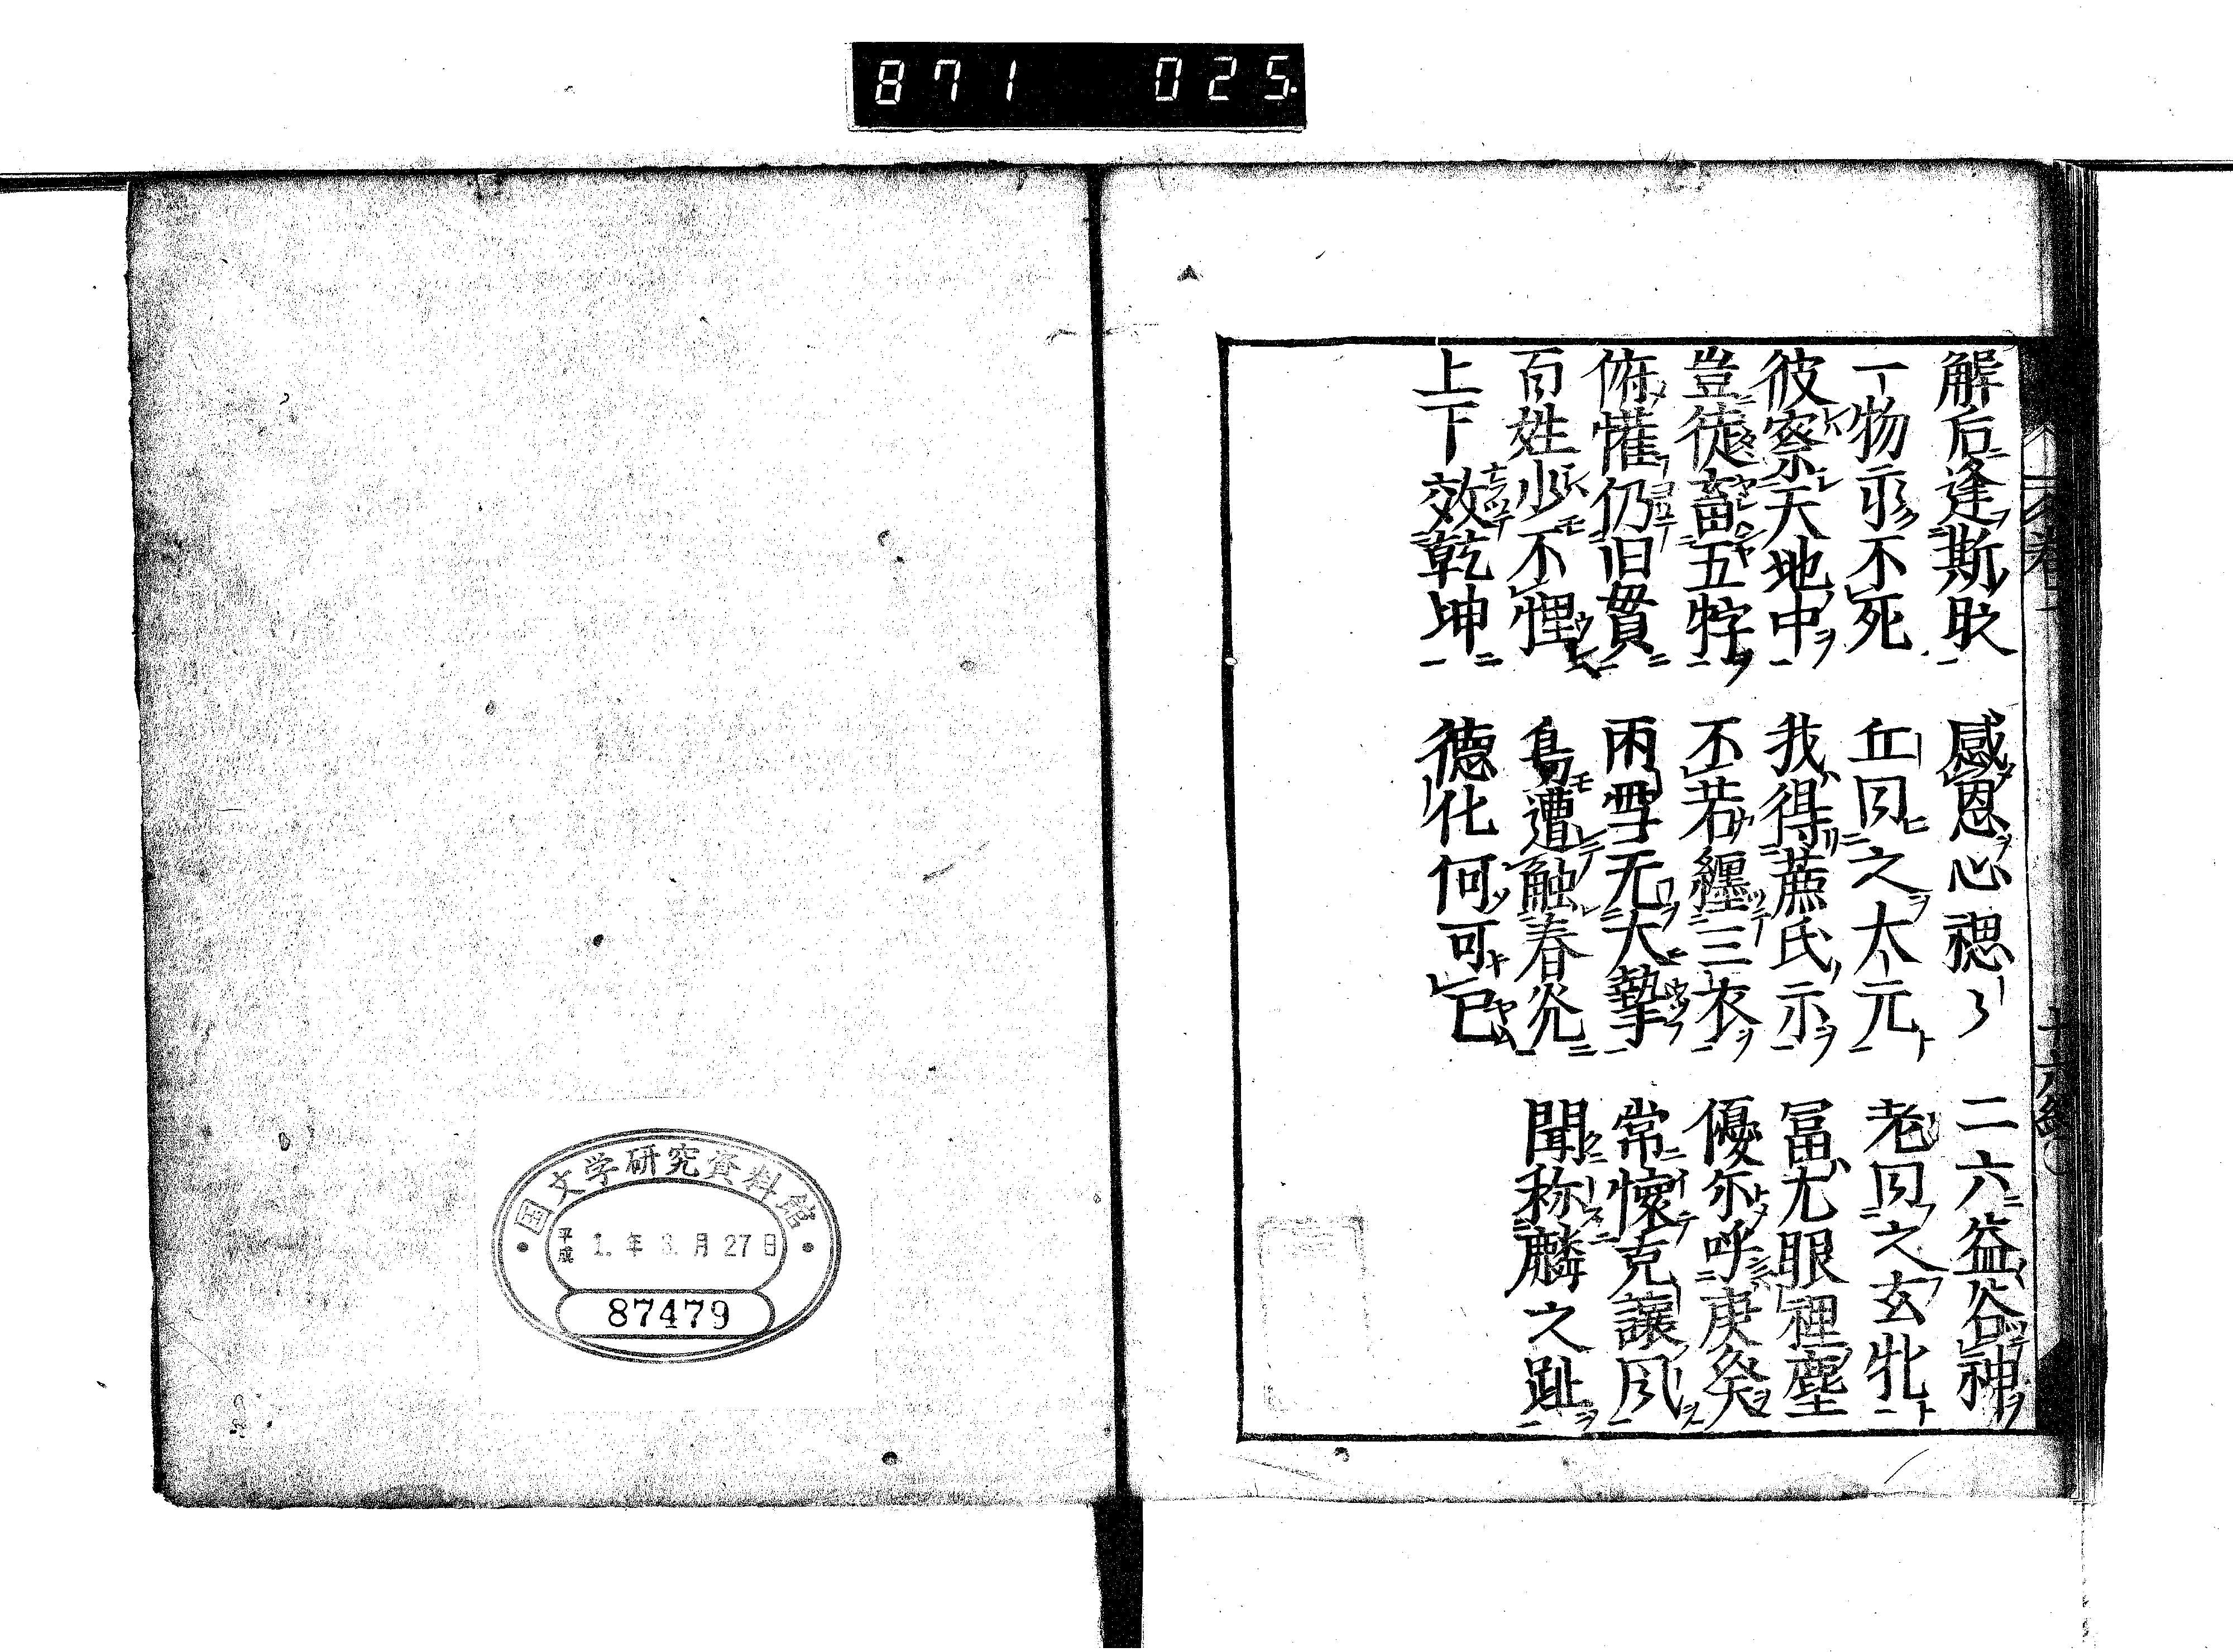 871 025
解后逢斯歐 感恩心禗〻 二六益谷神
一物示不死 丘囙之太元 老囙之玄牝
彼察天地中 我得蔗氏示 冨尤眼裡塵
豈徒畜五牸 丕若纒三衣 優尓呼庚癸
俯懽仍旧貫 雨雪无大摯 常懐克譲風
百姓少不悝 鳥遭觸春灮 聞称麟之趾
上下效乾坤 德化何可已
国文学研究資料館
平成 1.年 3.月 27日
87479